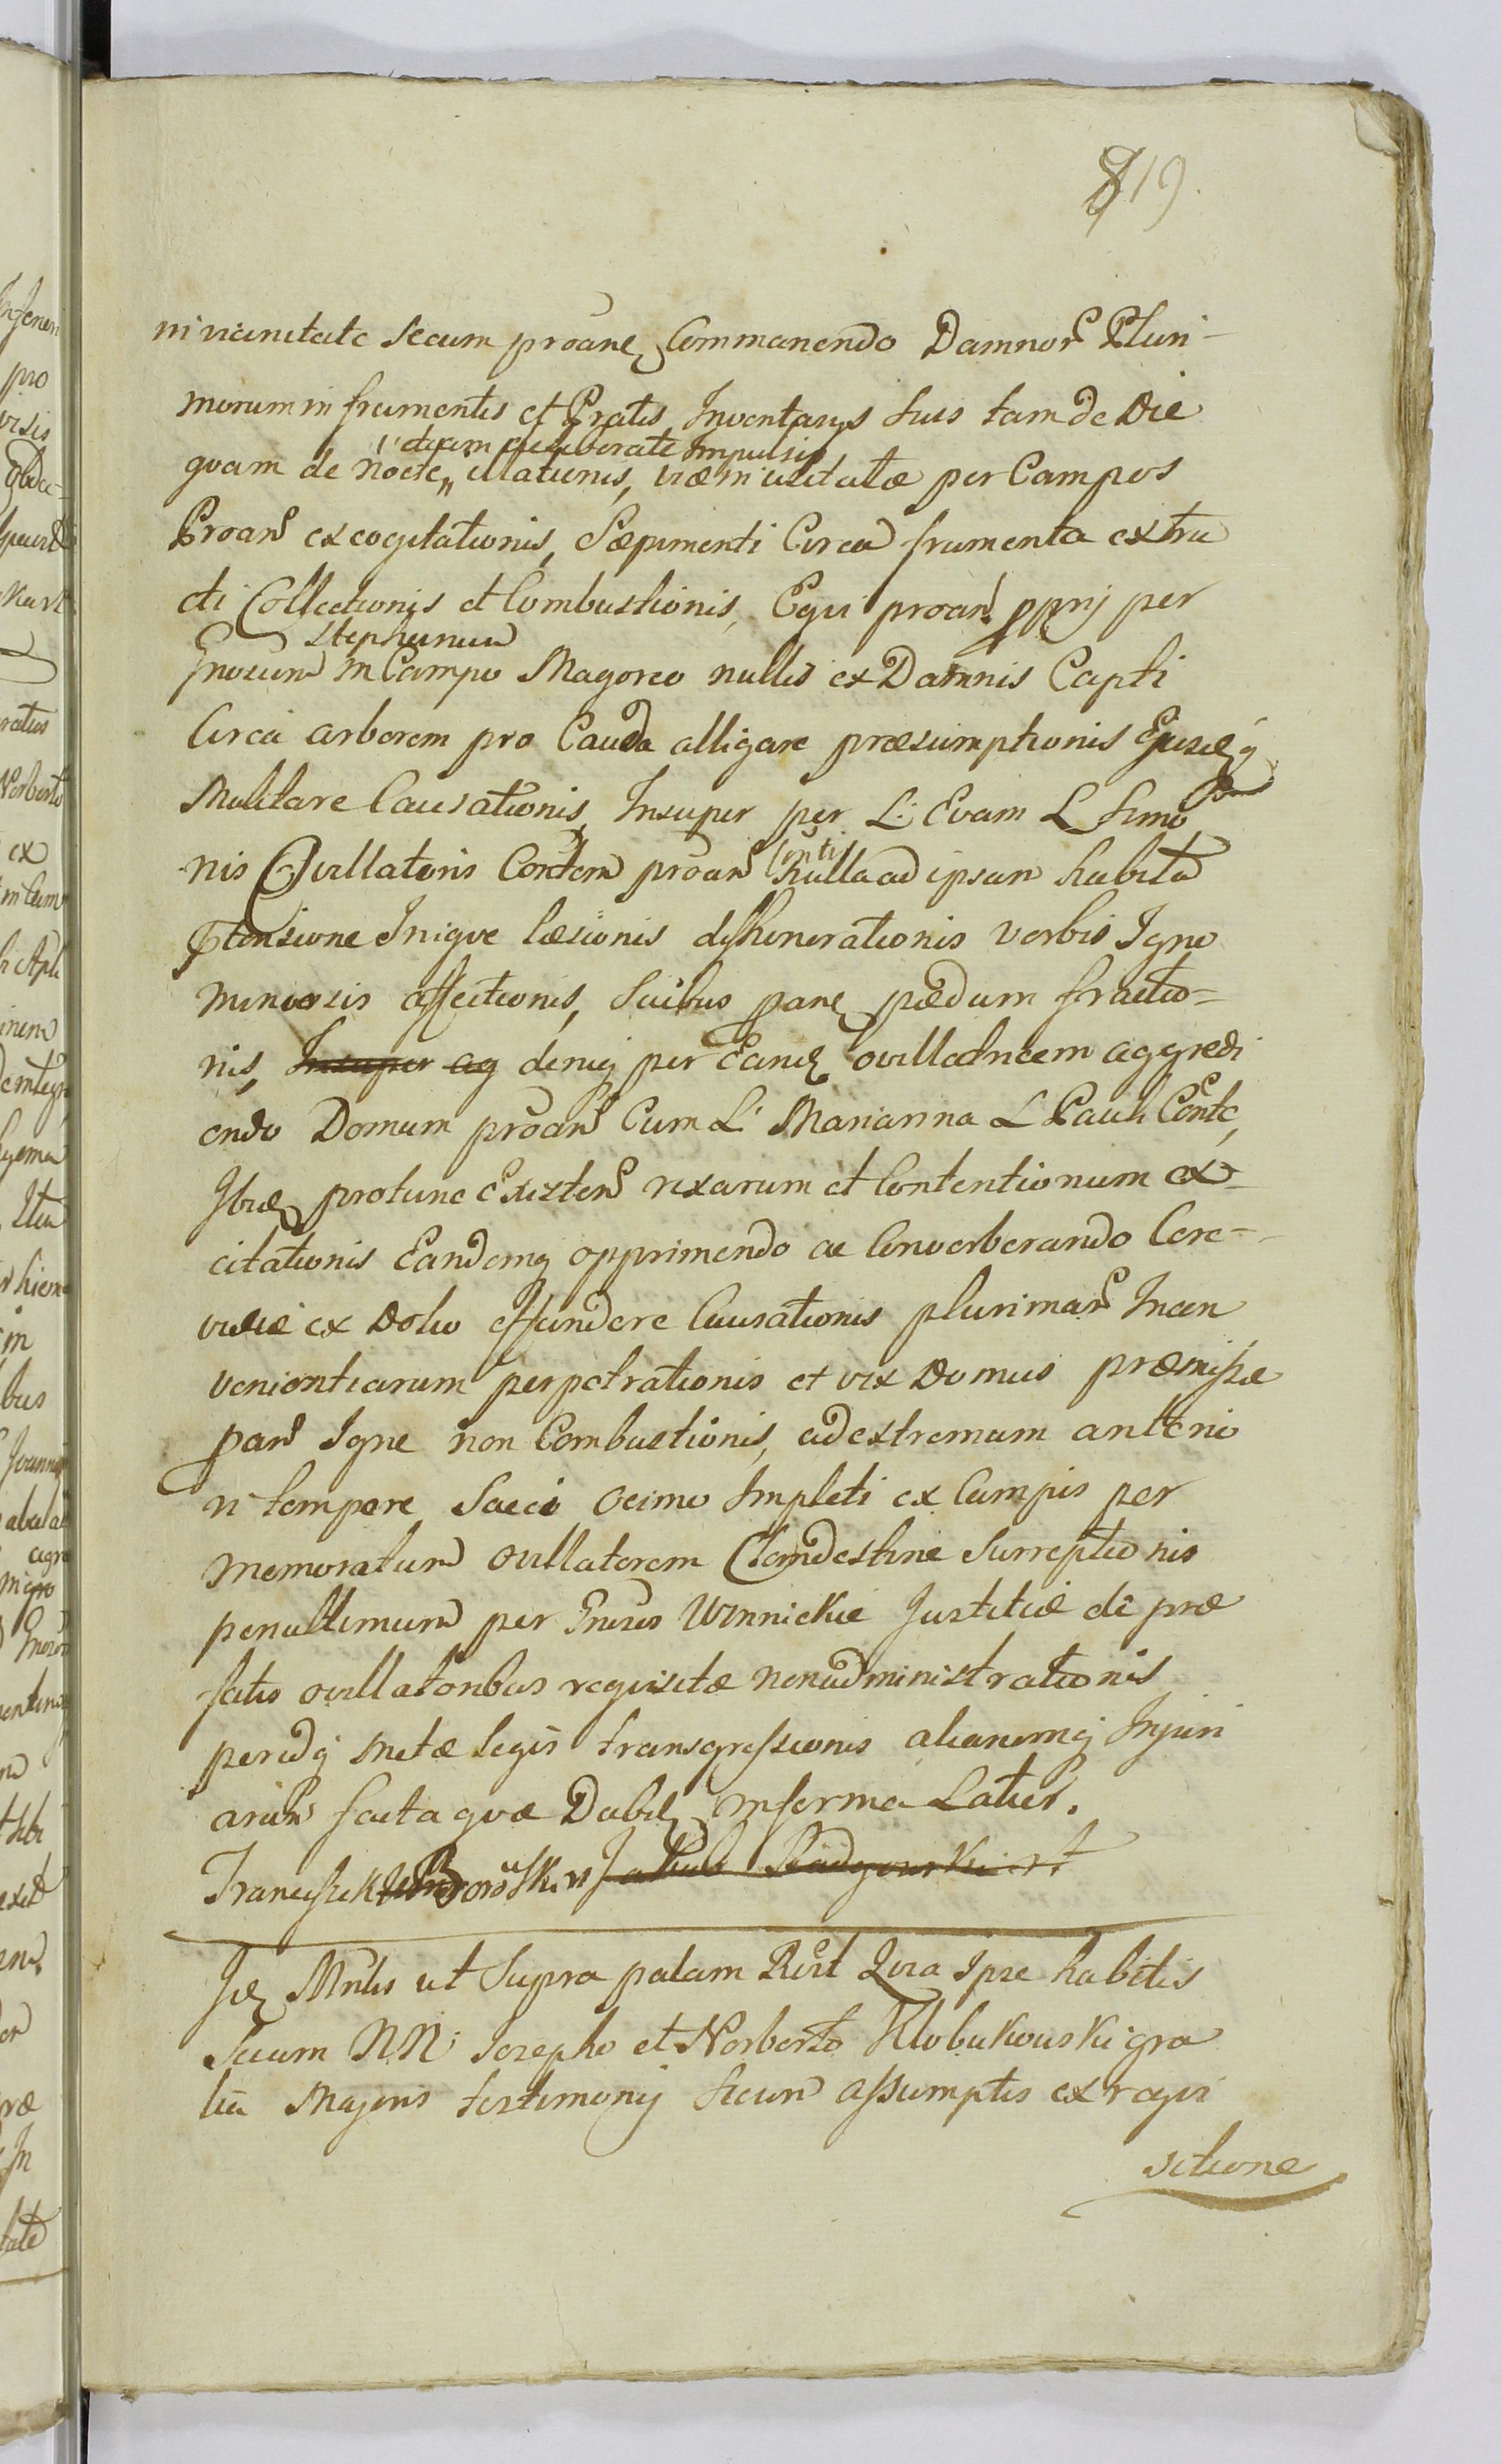 819.
in vicinitate secum proane Commanendo Damnor Pluri-
morum in frumentis et Pratis Inventarys suis tam de Die
etiam deliberate Impulsis
quam de nocte, illationis, viæ inusitatæ per Campos
Proan excogitationis, Sæpimenti Circa frumenta extru
cti Collectionis et Combustionis, Equi proan pprij per
Stephanum
Gnosum in Campo Magorco nullis ex Damnis Capti
Circa arborem pro Cauda alligare præsumptionis Ejusq
Mutilare Causationis, Insuper per L. Evam L Simo
nis Ovillatoris Contem proan nulla ad ipsam habita
ptensione Inique læsionis dishonorationis verbis Igno
miniosis affectionis, Suibus pane pedum fractio-
nis, Insuper ag deniq per Eand ovillatricem aggredi
endo Domum proan Cum L. Marianna L Pauli Conte,
Ibid protunc Existen rixarum et Contentionum ex-
citationis Eandemq opprimendo ac Converberando Cere-
visiæ ex Dolio effundere Causationis plurimar Incon
venientiarum perpetrationis et vix Domus præmissæ
pan Igne non Combustionis, ad extremum anterio
ri tempore Sacci ocimo Impleti ex Campis per
memoratum ovillatorem Clandestine Surreptionis
penultimum per Gnosos Winnickie Justitiæ de præ
fatis ovillatoribus requisitæ nonadministrationis
peridq metæ legis transgressionis aliarumq Injuri
arum facta quæ Dabit Informa Latius.
Franciszek Jakub
Id Mntis ut Supra palam Rlit Quia Ipse habitis
Secum NN. Josepho et Norberto Klobukowski gra
tia Majoris testimonij secum assumptis ex requi
sitione